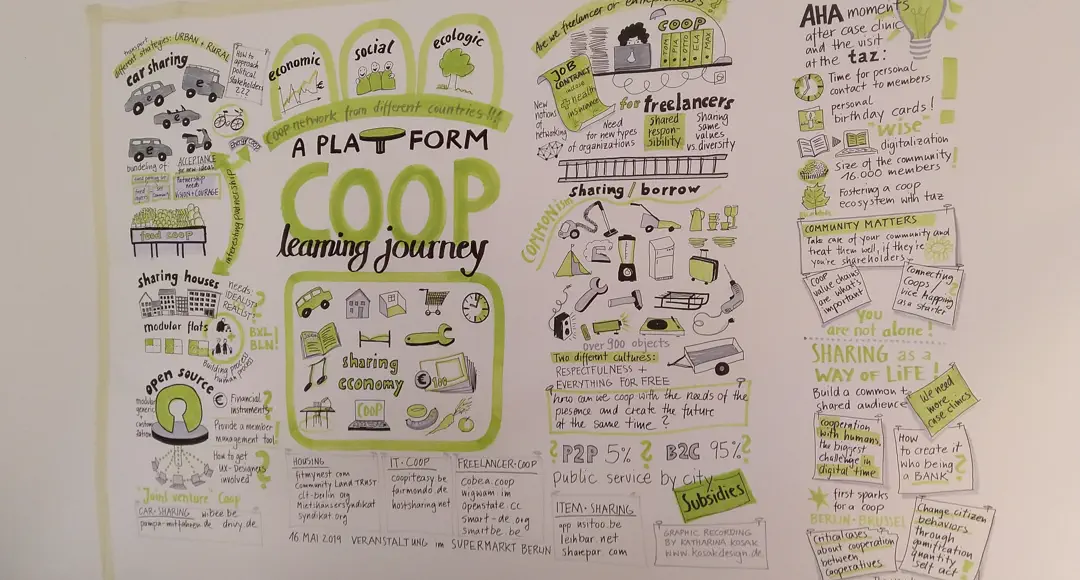 transport
different strategies: URBAN + RURAL
car sharing
How to
approach
political
stakeholders
???
e
e
e
e
energy coop
bundeling of
ACCEPTANCE
for new ideas
Partnership
needs
VISION + COURAGE
interesting partnership
food coop
sharing houses
needs:
IDEALIST?
REALIST?
modular flats
BXL.
BLN!
Building process
human process
open source
modular
generic
+
custom
ization
€ Financial
instruments?
Provide a member
management tool!
How to get
UX-Designers
involved?
"Joint venture" Coop
CAR-SHARING wibee.be
pampa-mitfahren.de drivy.de
economic
social
ecologic
€
COOP network from different countries!!!
A PLATFORM
COOP
learning journey
sharing
economy
€
100
COOP
HOUSING
fitmynest.com
Community Land TRUST
clt-berlin.org
Mietshäusersyndikat
syndikat.org
IT-COOP
coopiteasy.be
fairmondo.de
hostsharing.net
FREELANCER-COOP
cobea.coop
wigwam.im
openstate.cc
smart-de.org
smartbe.be
16 MAI 2019 VERANSTALTUNG im SUPERMARKT BERLIN
Are we freelancer or entrepreneurs
COOP
TOM
PIA
OTTO
ELA
MAX
JOB
CONTRACT
include
+ health
insurance
New
notions
of
networking
for freelancers
Need
for new types
of organizations
Shared
respon-
sibility
Sharing
same
values
vs. diversity
sharing / borrow
COMMONism
over 900 objects
Two different cultures:
RESPECTFULNESS +
EVERYTHING FOR FREE
how can we coop with the needs of the
presence and create the future
at the same time?
P2P 5% ? B2C 95% ?
public service by city
Subsidies
ITEM-SHARING
app usitoo.be
leihbar.net
sharepar.com
GRAPHIC RECORDING
BY KATHARINA KOSAK
www.kosakdesign.de
AHA moments
after case clinic
and the visit
at the taz:
Time for personal
contact to members
personal
birthday cards!
"wise"
digitalization
size of the community
16.000 members
Fostering a coop
ecosystem with taz
COMMUNITY MATTERS
Take care of your community and
treat them well, if they're
you're shareholders
COOP
value chains
are what's
important
Connecting
Coops
bice happing
as a starter
You
are not alone!
SHARING as a
WAY OF LIFE!
Build a common +
shared audience
We need
more
case clinics
cooperation
with humans.
the biggest
challenge in
digital time
How
to create it
who being
a BANK?
first sparks
for a coop
BERLIN-BRUSSEL
Critical cases
about cooperation
between
cooperatives
Change citizen
behaviors
through
gamification
quantity
self act